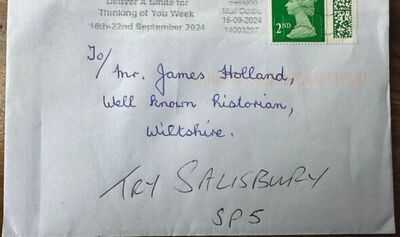 Deliver A Smile for
Thinking of You Week
16th-22nd September 2024
Mail Centre
16-09-2024
2ND
To/
Mr. James Holland,
Well known Historian,
Wiltshire.
TRY SALISBURY
SP5